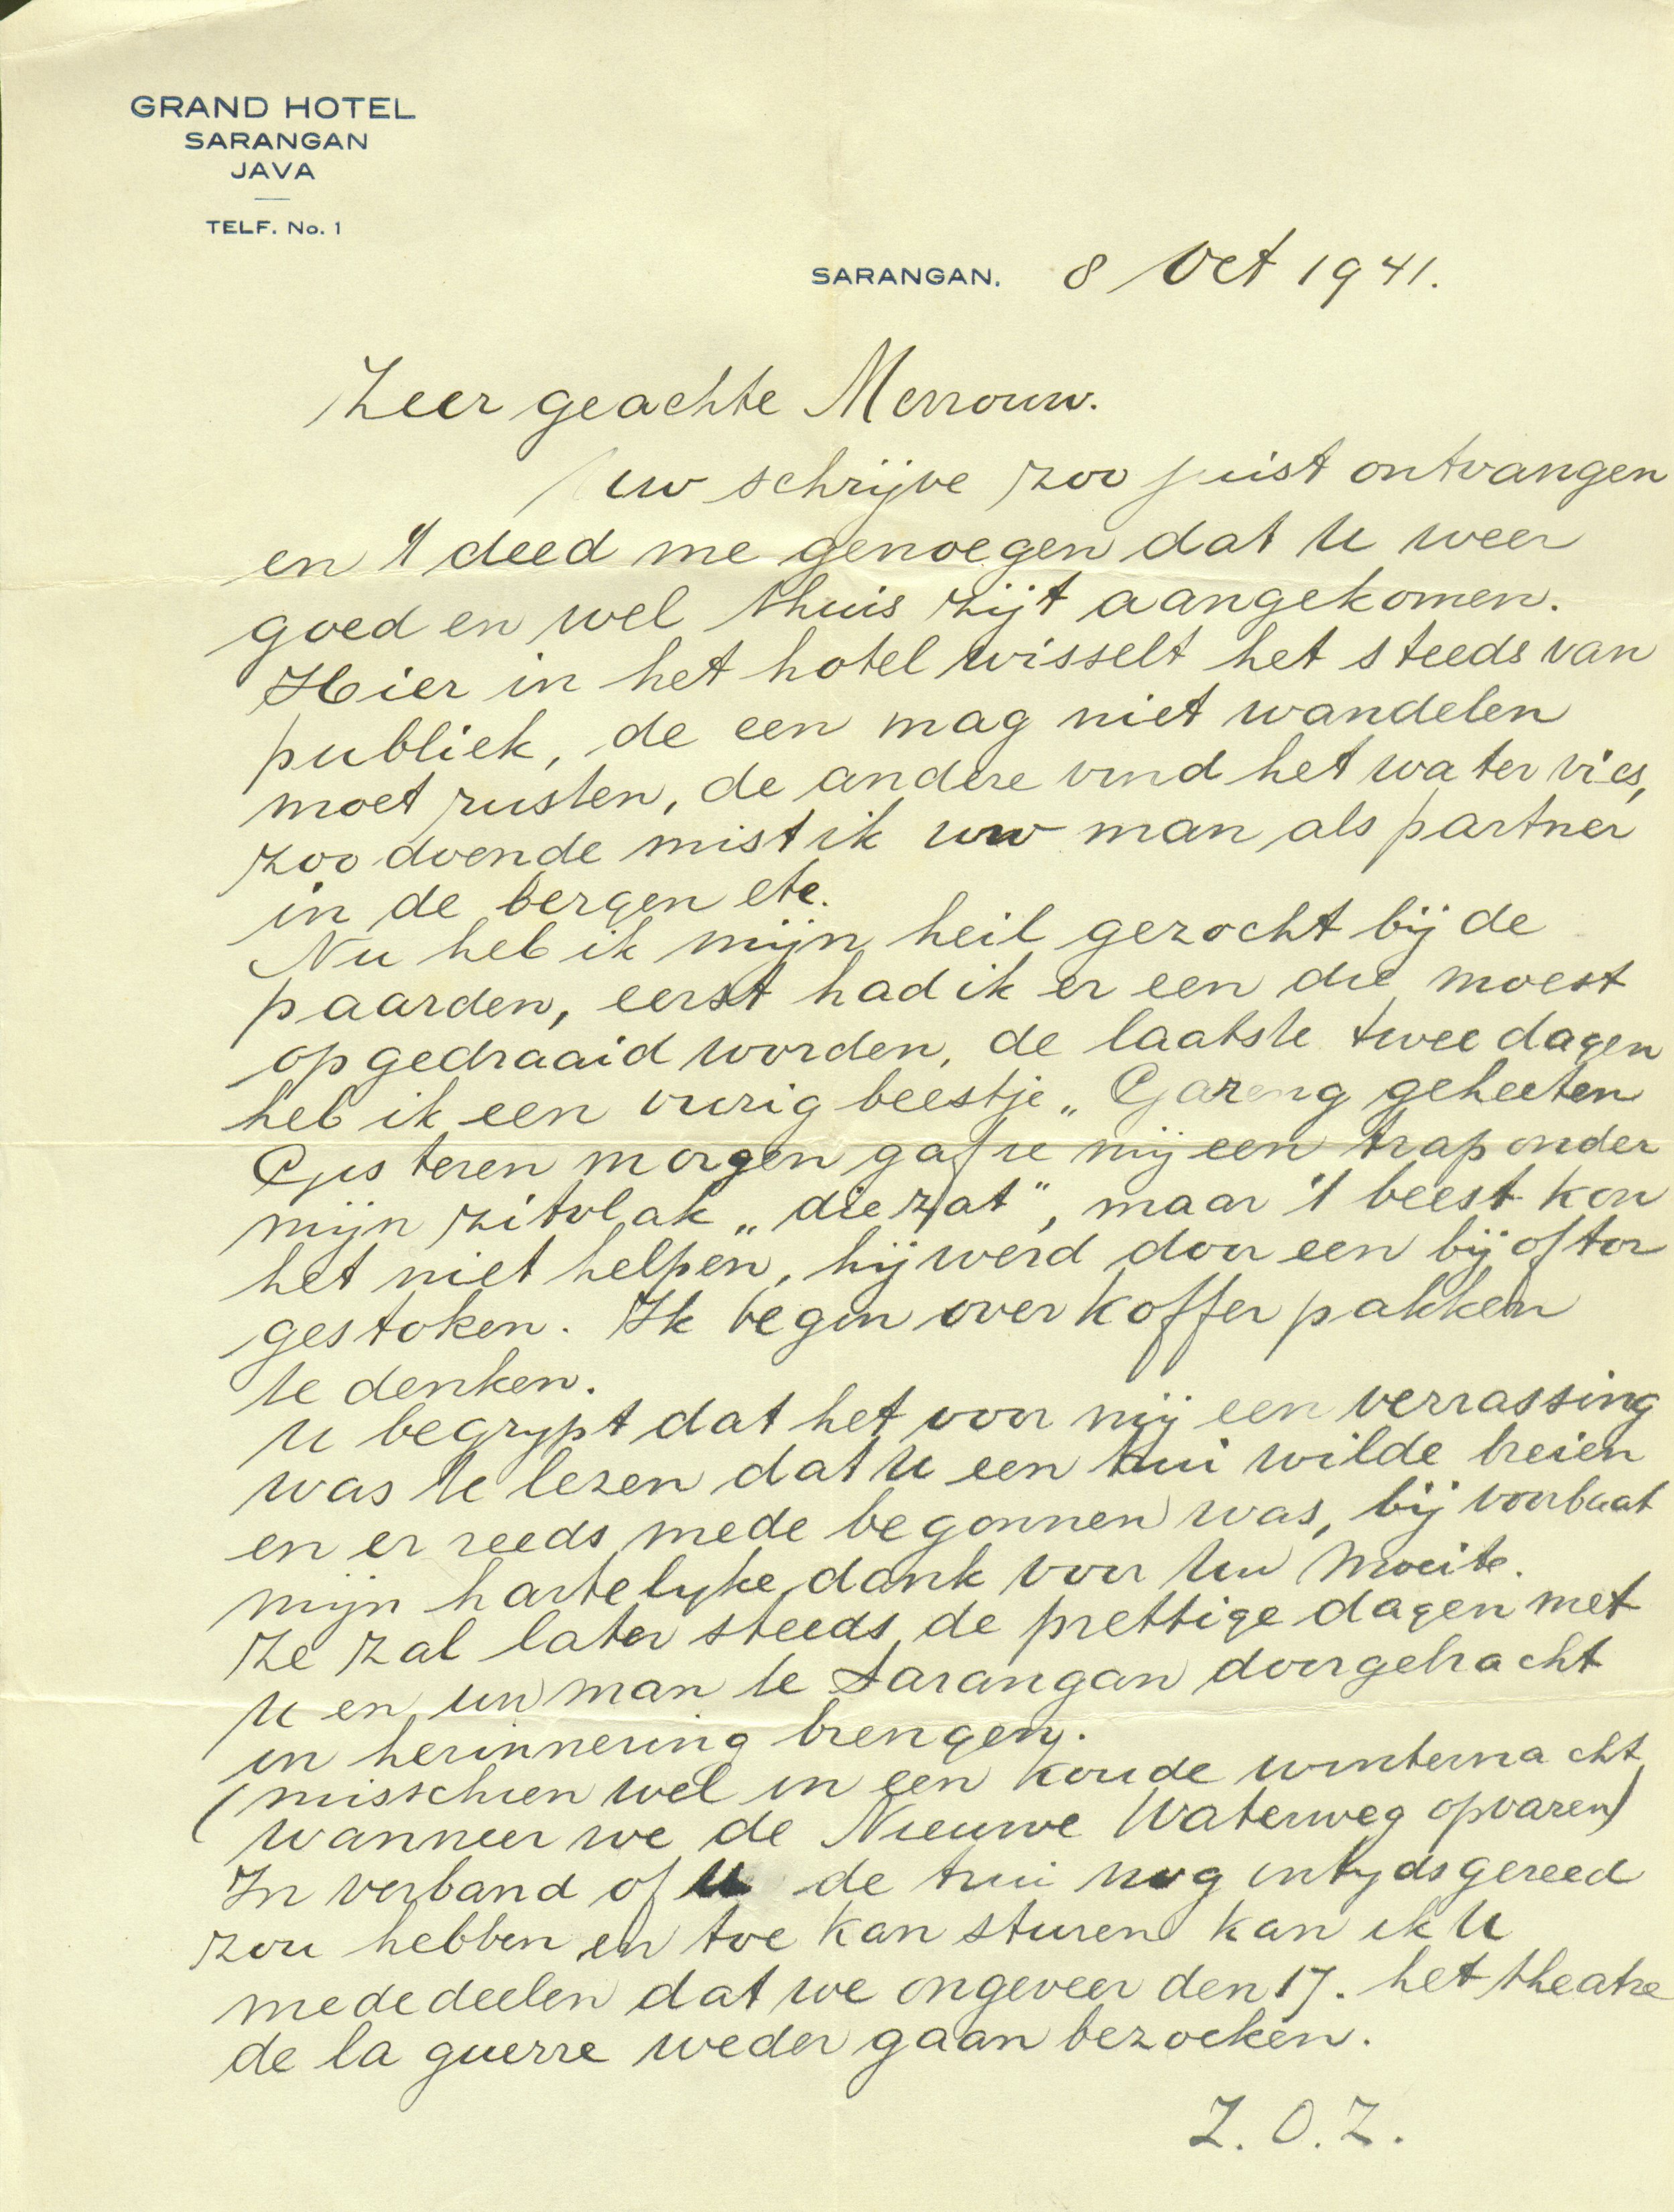 GRAND HOTEL
SARANGAN
JAVA
TELF. No. 1
SARANGAN. 8 Oct 1941.
Zeer geachte Mevrouw.
Uw schrijve zoo juist ontvangen
en 't deed me genoegen dat U weer
goed en wel thuis zijt aangekomen.
Hier in het hotel wisselt het steeds van
publiek, de een mag niet wandelen
moet rusten, de andere vind het water vies,
zoo doende mist ik uw man als partner
in de bergen etc.
Nu heb ik mijn heil gezocht bij de
paarden, eerst had ik er een die moest
opgedraaid worden, de laatste twee dagen
heb ik een vurig beestje „Gareng geheeten
Gisteren morgen gaf ze mij een trap onder
mijn zitvlak „die zat", maar 't beest kon
het niet helpen, hij werd door een bij of tor
gestoken. Ik begin over koffer pakken
te denken.
U begrypt dat het voor mij een verrassing
was te lezen dat U een trui wilde breien
en er reeds mede begonnen was, bij voorbaat
mijn hartelyke dank voor Uw moeite.
Ze zal later steeds de prettige dagen met
U en uw man te Sarangan doorgebracht
in herinnering brengen.
(misschien wel in een koude winternacht
wanneer we de Nieuwe Waterweg opvaren)
In verband of U de trui nog intyds gereed
zou hebben en toe kan sturen kan ik U
mededeelen dat we ongeveer den 17. het theatre
de la guerre weder gaan bezoeken.
Z.O.Z.